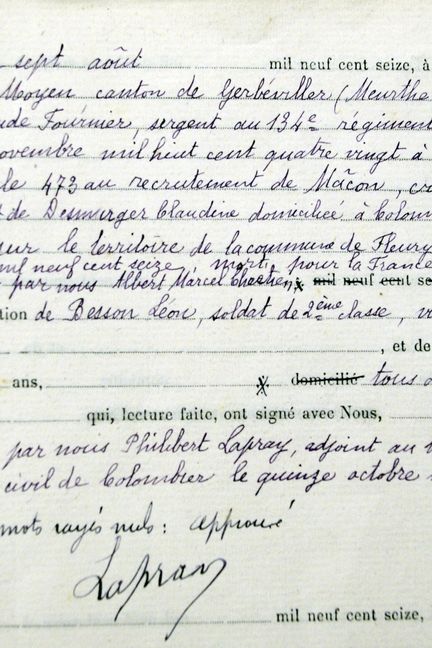 sept août mil neuf cent seize, à
Moyen canton de Gerbéviller (Meurthe
ude Fournier, sergent au 134e régiment
ovembre mil huit cent quatre vingt à
le 473 au recrutement de Mâcon, cr
t de Desmurger Claudine domiciliée à Colom
sur le territoire de la commune de Fleury
mil neuf cent seize, mort pour la France
par nous Albert Marcel mil neuf cent se
tion de Besson Léon, soldat de 2ème classe, v
, et de
ans, x domicilié tous d
qui, lecture faite, ont signé avec Nous,
par nous Philibert Lapray, adjoint au
civil de Colombier le quinze octobre
mots rayés nuls : approuvé
Lapray
mil neuf cent seize,